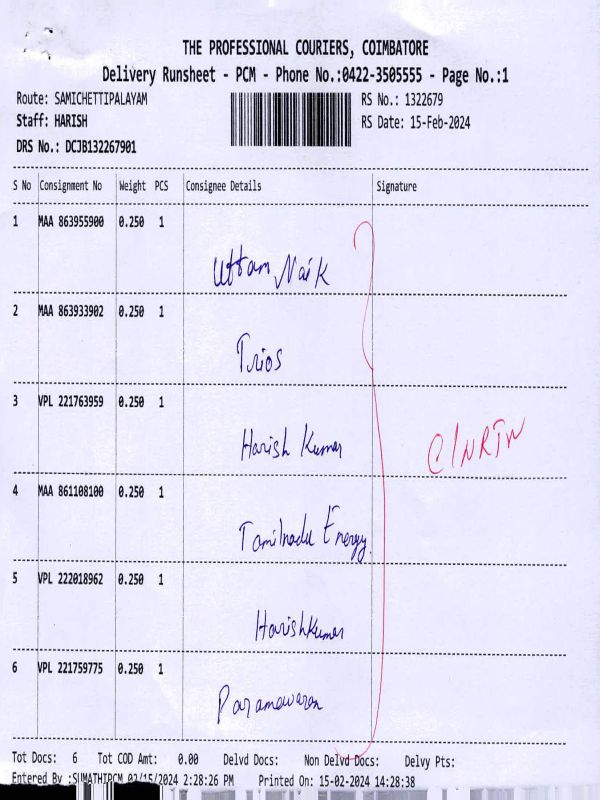 THE PROFESSIONAL COURIERS, COIMBATORE
Delivery Runsheet - PCM - Phone No.:0422-3505555 - Page No.:1
Route: SAMICHETTIPALAYAM RS No.: 1322679
Staff: HARISH RS Date: 15-Feb-2024
DRS No.: DCJB132267901
S No Consignment No Weight PCS Consignee Details Signature
1 MAA 863955900 0.250 1
Uttam Naik
2 MAA 863933902 0.250 1
Trios
3 VPL 221763959 0.250 1
Harish Kumar
4 MAA 861108100 0.250 1
Tamilnadu Energy
5 VPL 222018962 0.250 1
Harishkumar
6 VPL 221759775 0.250 1
Tot Docs: 6 Tot COD Amt: 0.00 Delvd Docs: Non Delvd Docs: Delvy Pts:
Entered By :SUMATHIPCM 02/15/2024 2:28:26 PM Printed On: 15-02-2024 14:28:38